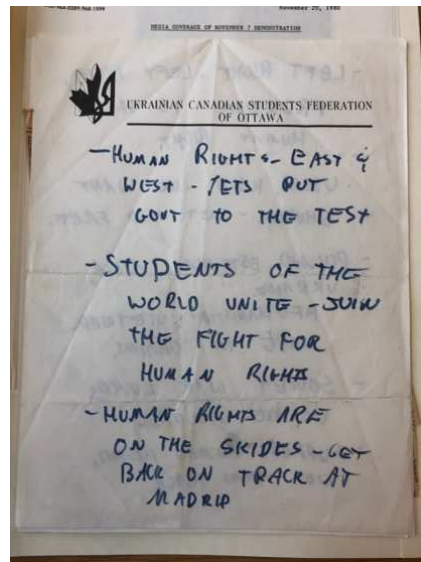 November 20, 1980
MEDIA COVERAGE OF NOVEMBER 7 DEMONSTRATION
UKRAINIAN CANADIAN STUDENTS FEDERATION
OF OTTAWA
- HUMAN RIGHTS - EAST &
WEST - LETS PUT
GOVT TO THE TEST
- STUDENTS OF THE
WORLD UNITE - JOIN
THE FIGHT FOR
HUMAN RIGHTS
- HUMAN RIGHTS ARE
ON THE SKIDES - GET
BACK ON TRACK AT
MADRID